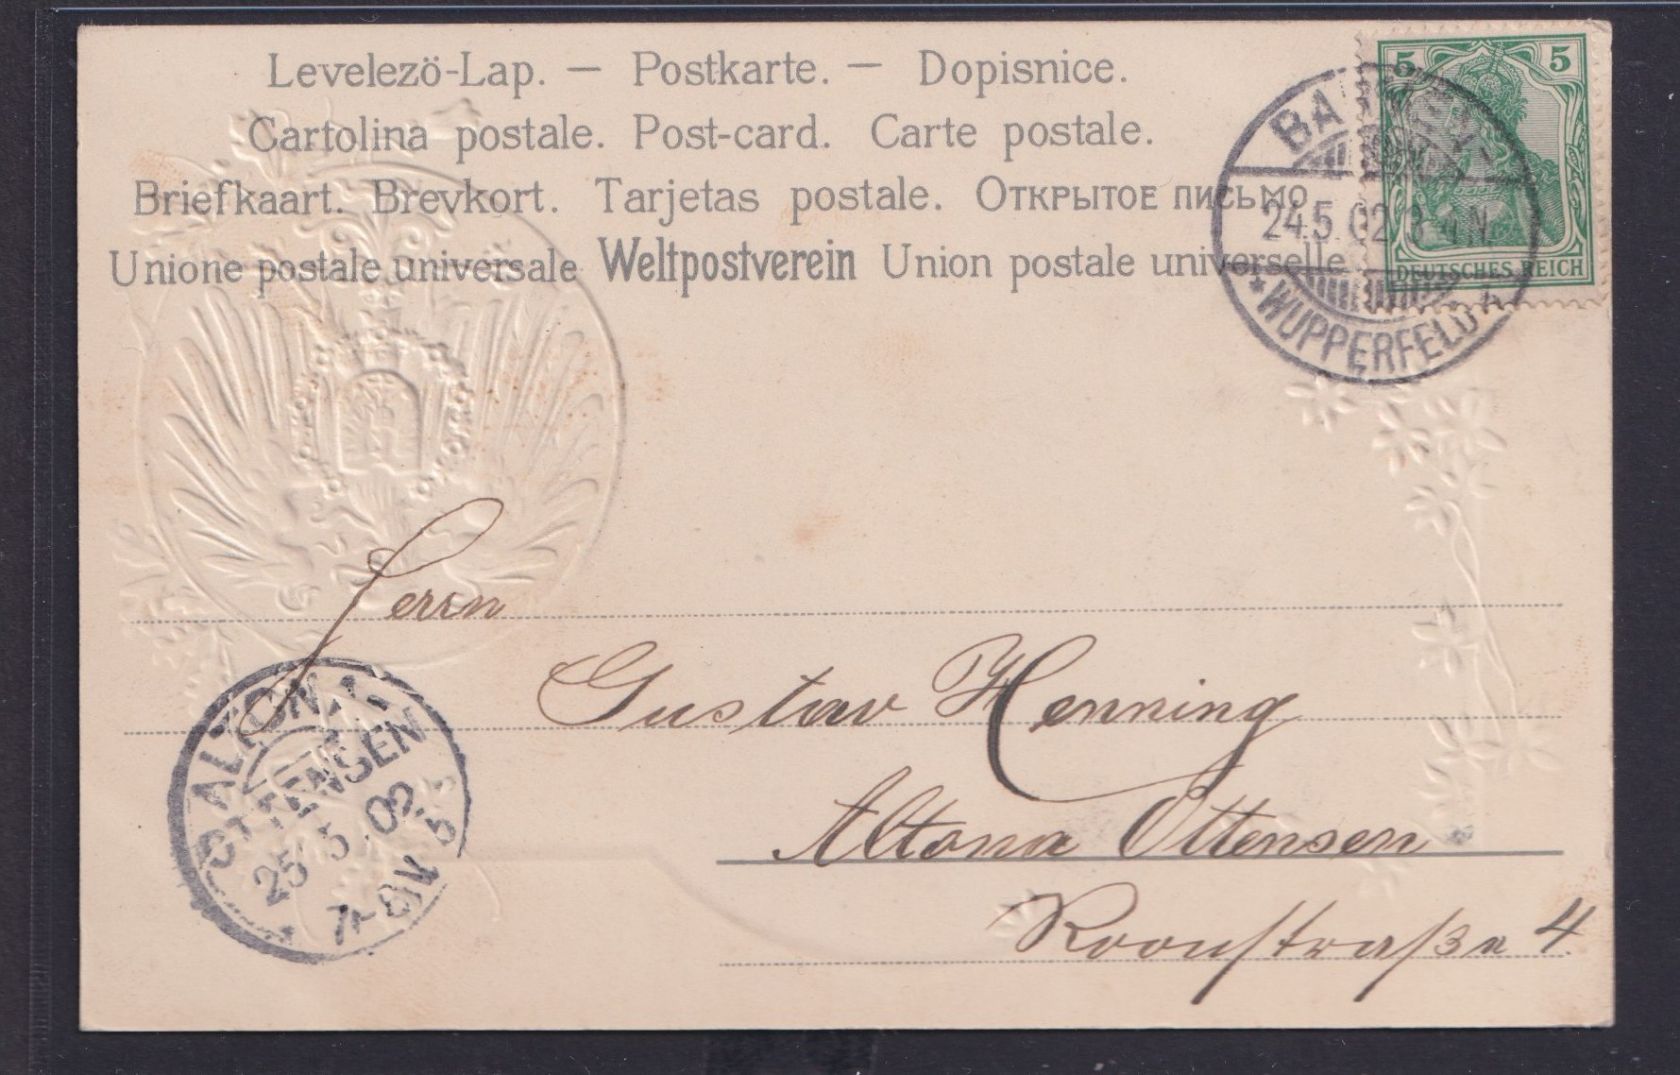 Levelezö-Lap. — Postkarte. — Dopisnice.
Cartolina postale. Post-card. Carte postale.
Briefkaart. Brevkort. Tarjetas postale. Открытое письмо
Unione postale universale Weltpostverein Union postale universelle
5 5
DEUTSCHES REICH
24.5.02
* WUPPERFELD
Herrn
Gustav Henning
Altona Ottensen
Roonstraße 4
ALTONA
OTTENSEN
25.5.02
7-8 V